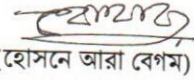 হোসনে আরা বেগম